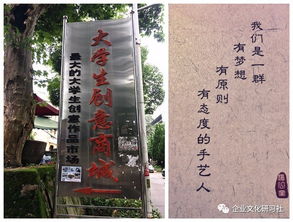 大学生创意商城
最大的大学生创意作品市场
我们是一群
有梦想
有原则
有态度的手艺人
企业文化研习社